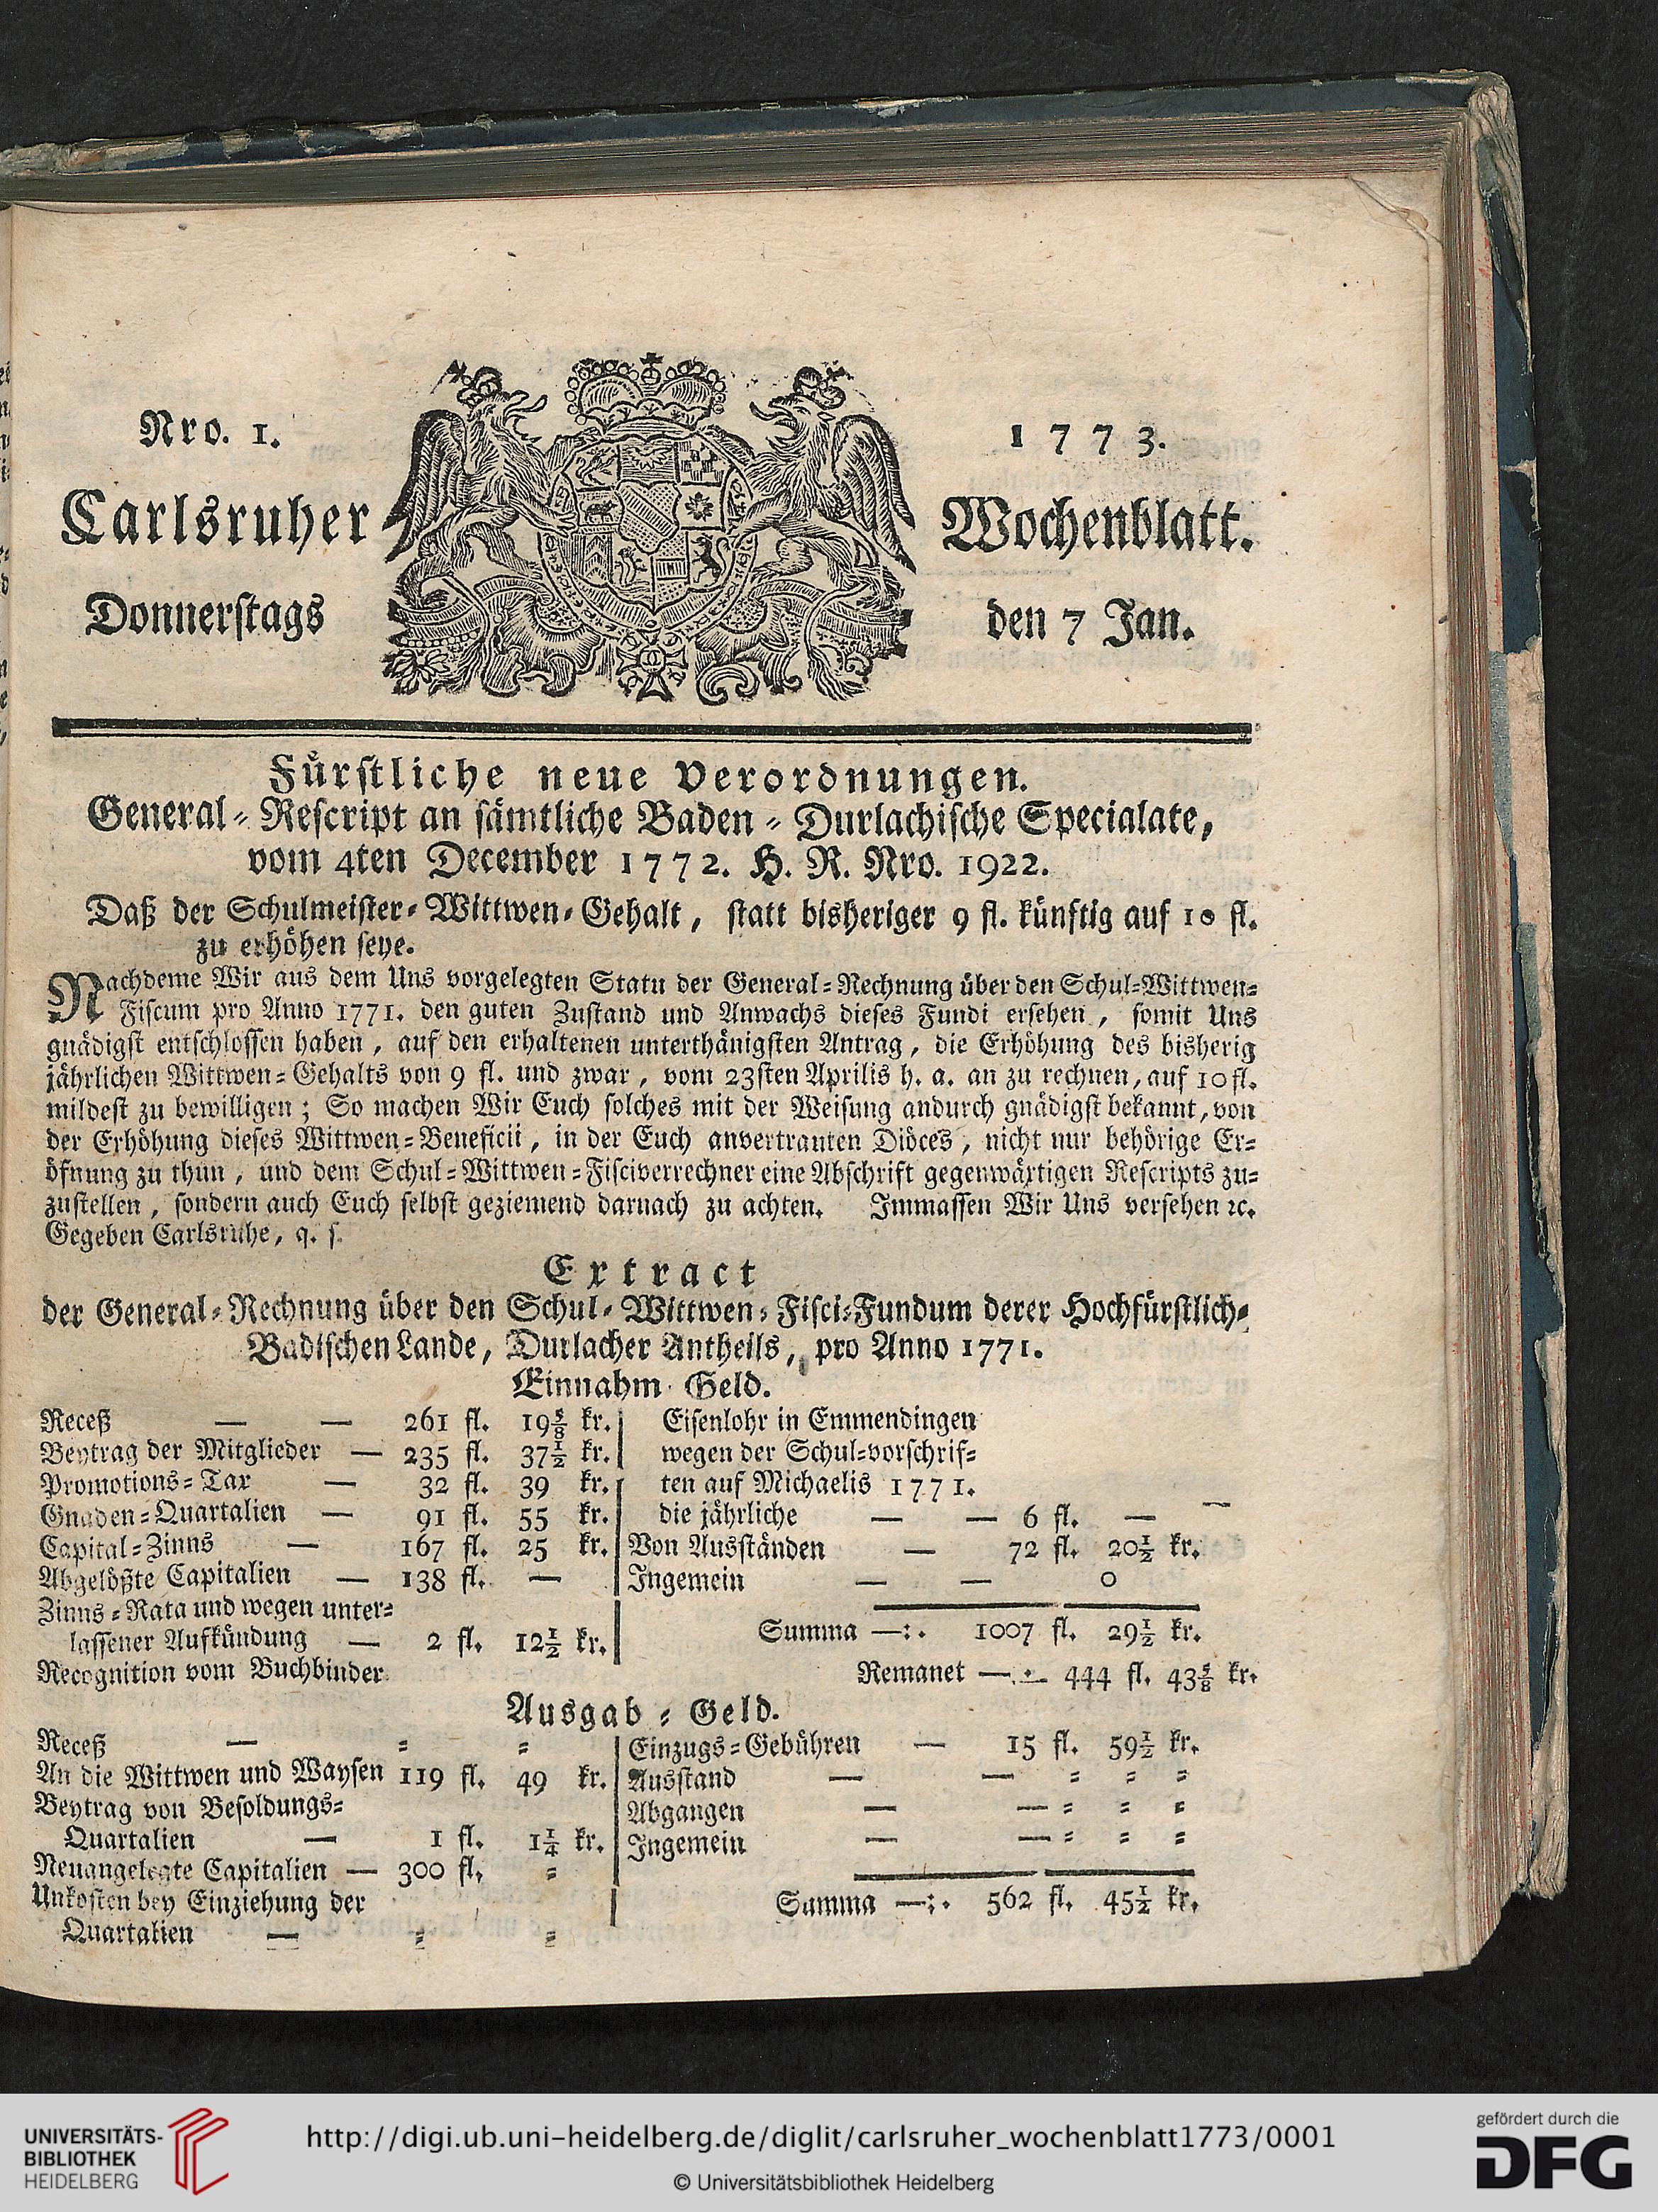 Nro. 1.
1773.
Carlsruher
Wochenblatt.
Donnerstags
den 7 Jan.
Fürstliche neue Verordnungen.
General-Rescript an sämtliche Baden-Durlachische Specialate,
vom 4ten December 1772. H. R. Nro. 1922.
Daß der Schulmeister-Wittwen-Gehalt, statt bisheriger 9 fl. künftig auf 10 fl.
zu erhöhen seye.
Nachdeme Wir aus dem Uns vorgelegten Statu der General-Rechnung über den Schul-Wittwen-
Fiscum pro Anno 1771. den guten Zustand und Anwachs dieses Fundi ersehen, somit Uns
gnädigst entschlossen haben, auf den erhaltenen unterthänigsten Antrag, die Erhöhung des bisherig
jährlichen Wittwen-Gehalts von 9 fl. und zwar, vom 23sten Aprilis h. a. an zu rechnen, auf 10 fl.
mildest zu bewilligen; So machen Wir Euch solches mit der Weisung andurch gnädigst bekannt, von
der Erhöhung dieses Wittwen-Beneficii, in der Euch anvertrauten Diöces, nicht nur behörige Er-
öfnung zu thun, und dem Schul-Wittwen-Fisciverrechner eine Abschrift gegenwärtigen Rescripts zu-
zustellen, sondern auch Euch selbst geziemend darnach zu achten. Immassen Wir Uns versehen ꝛc.
Gegeben Carlsruhe, q. s.
Extract
der General-Rechnung über den Schul-Wittwen-Fisci-Fundum derer Hochfürstlich-
Badischen Lande, Durlacher Antheils, pro Anno 1771.
Einnahm Geld.
Receß — — 261 fl. 19⅝ kr.
Beytrag der Mitglieder — 235 fl. 37½ kr.
Promotions-Tax — 32 fl. 39 kr.
Gnaden-Quartalien — 91 fl. 55 kr.
Capital-Zinns — 167 fl. 25 kr.
Abgelößte Capitalien — 138 fl. —
Zinns-Rata und wegen unter-
lassener Aufkündung — 2 fl. 12½ kr.
Recognition vom Buchbinder
Eisenlohr in Emmendingen
wegen der Schul-vorschrif-
ten auf Michaelis 1771.
die jährliche — — 6 fl. —
Von Ausständen — 72 fl. 20½ kr.
Ingemein — — 0
Summa —:. 1007 fl. 29½ kr.
Remanet —.— 444 fl. 43⅝ kr.
Ausgab-Geld.
Receß — = =
An die Wittwen und Waysen 119 fl. 49 kr.
Beytrag von Besoldungs-
Quartalien — 1 fl. 1¼ kr.
Neuangelegte Capitalien — 300 fl. =
Unkosten bey Einziehung der
Quartalien — = =
Einzugs-Gebühren — 15 fl. 59½ kr.
Ausstand — — = = =
Abgangen — — = = =
Ingemein — — = = =
Summa —:. 562 fl. 45½ kr.
UNIVERSITÄTS-
BIBLIOTHEK
HEIDELBERG
http://digi.ub.uni-heidelberg.de/diglit/carlsruher_wochenblatt1773/0001
© Universitätsbibliothek Heidelberg
gefördert durch die
DFG